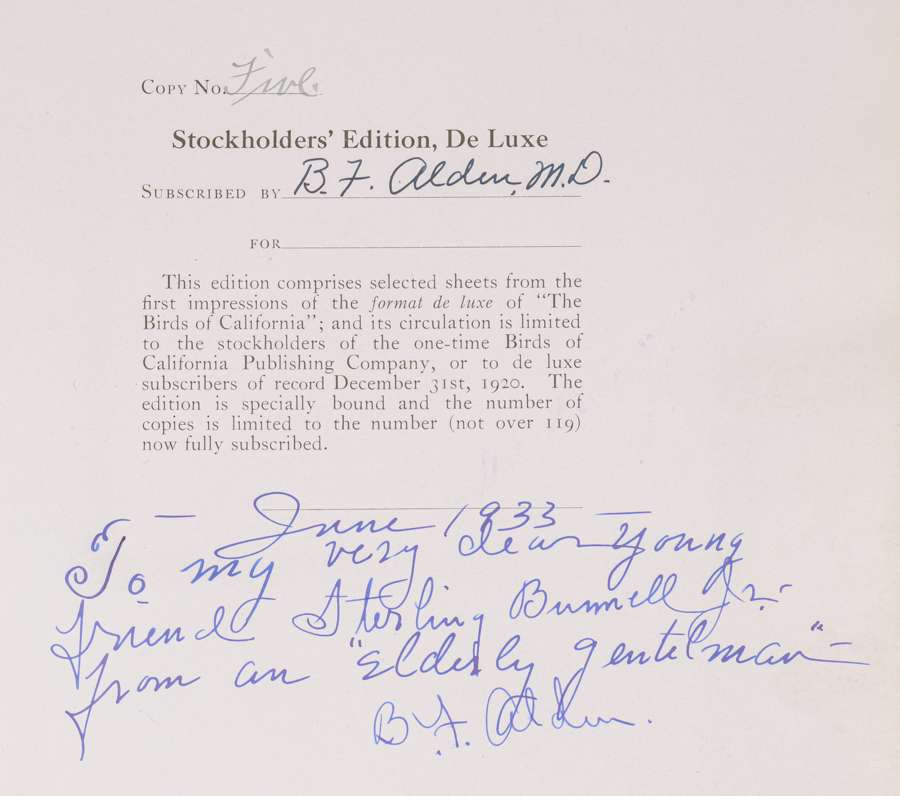 COPY No. Five.
Stockholders' Edition, De Luxe
SUBSCRIBED BY B. F. Alden, M.D.
FOR
This edition comprises selected sheets from the
first impressions of the format de luxe of "The
Birds of California"; and its circulation is limited
to the stockholders of the one-time Birds of
California Publishing Company, or to de luxe
subscribers of record December 31st, 1920. The
edition is specially bound and the number of
copies is limited to the number (not over 119)
now fully subscribed.
— June 1933 —
To my very dear young
friend Sterling Bunnell Jr.-
from an "elderly gentelman"-
B. F. Alden.